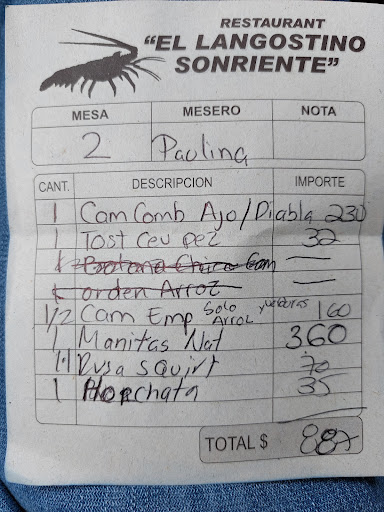 RESTAURANT
"EL LANGOSTINO
SONRIENTE"
MESA MESERO NOTA
2 Paolina
CANT. DESCRIPCION IMPORTE
1 Cam Comb Ajo/Diabla 230
1 Tost Cev pez 32
orden Arroz
1/2 Cam Emp Solo Arroz y verduras 160
1 Manitas Nat 360
Rusa squirt 70
1 Horchata 35
TOTAL $ 887